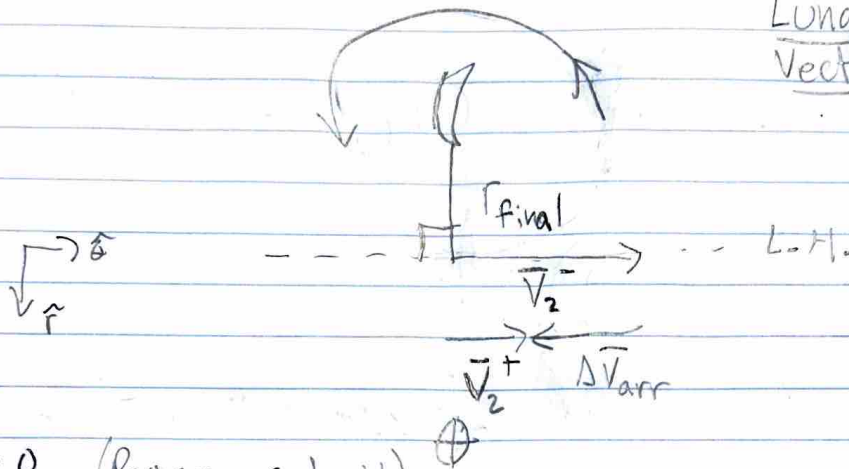 Luna
Vect
r final
θ̂
L.H.
V̄₂⁻
r̂
V̄₂⁺ ΔV̄arr